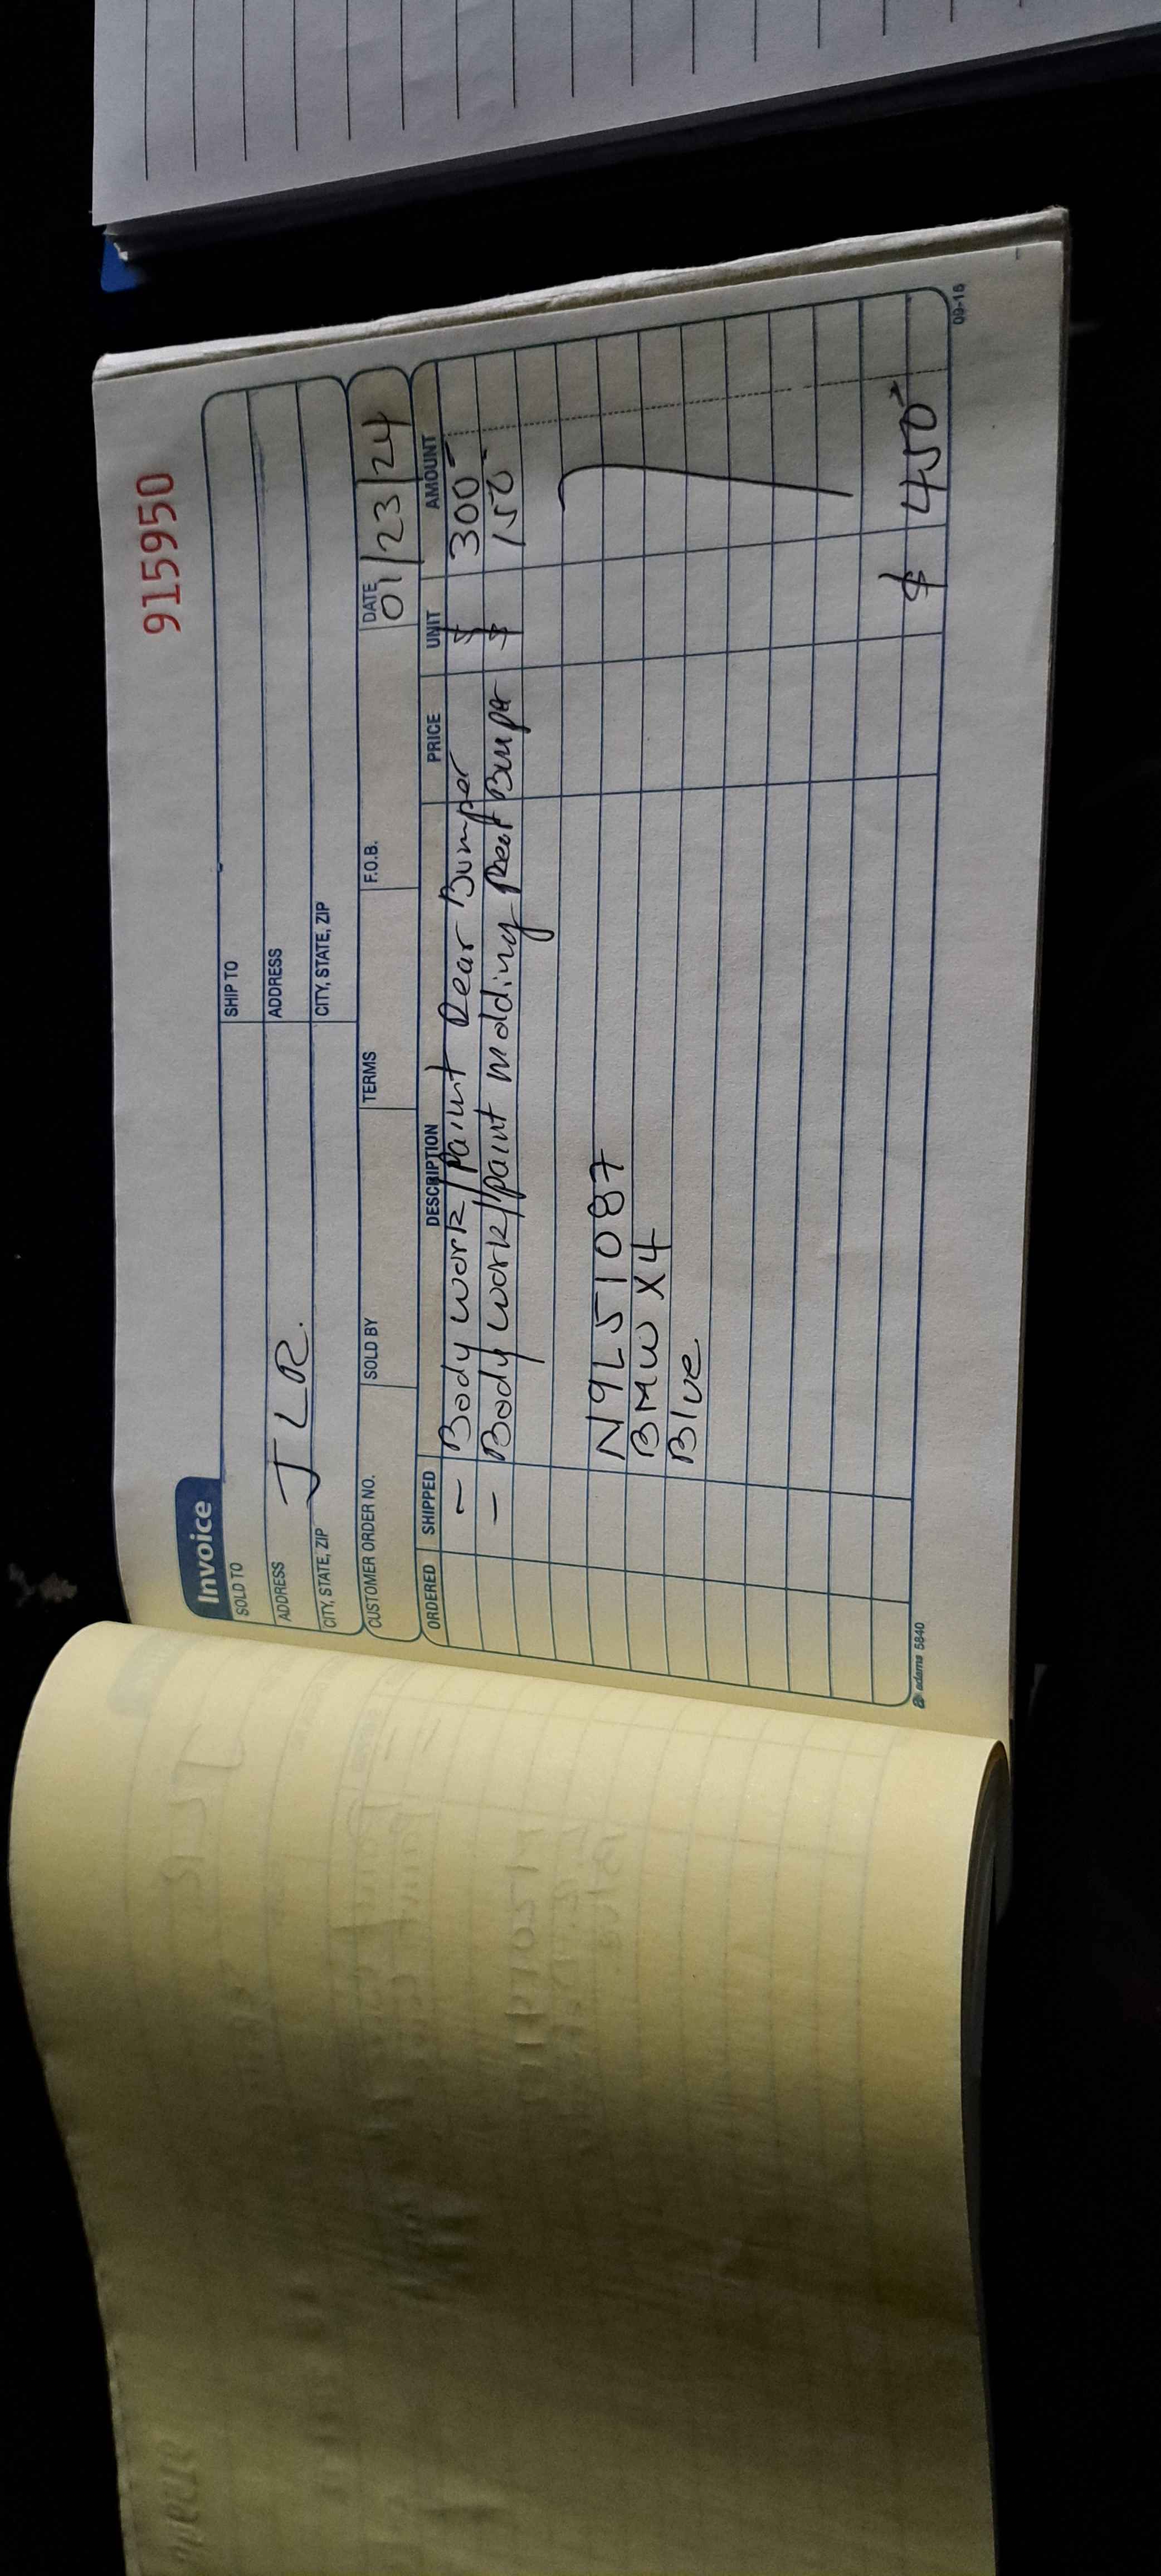 915950
Invoice
SOLD TO
SHIP TO
ADDRESS
ADDRESS
J L R.
CITY, STATE, ZIP
CITY, STATE, ZIP
CUSTOMER ORDER NO. SOLD BY TERMS F.O.B. DATE
01/23/24
ORDERED SHIPPED DESCRIPTION PRICE UNIT AMOUNT
- Body work/Paint Rear Bumper $ 300-
- Body work/paint molding Rear Bumper $ 150-
N9L51087
BMW X4
Blue
$ 450
adams 5840
09-16